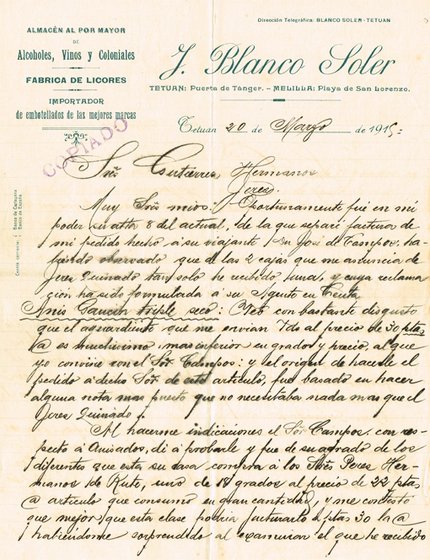 ALMACÉN AL POR MAYOR
DE
Alcoholes, Vinos y Coloniales
FABRICA DE LICORES
IMPORTADOR
de embotellados de las mejores marcas
Dirección Telegráfica: BLANCO SOLER - TETUAN
J. Blanco Soler
TETUAN: Puerta de Tánger. - MELILLA: Playa de San Lorenzo.
COPIADO
Tetuan 20 de Marzo de 1915
Gutierrez Hermanos
Jerez
Muy Sres mios: Oportunamente fué en mi
poder su atta 8 del actual, de la que separé factura de
mi pedido hecho á su viajante Sr José de Campos, ha-
observado que de las 2 cajas que me anuncia de
Jerez Quinado tan solo he recibido una, y cuya reclama
ción ha sido formulada á su Agente en Ceuta
triple seco: Veo con bastante disgusto
que el aguardiente que me envian Vds al precio de 30 ptas
@ es muchisimo mas inferior en grados y precio, al que
yo convine con el Sor Campos: y el origen de hacerle el
pedido á dicho Sor de este articulo, fué basado en hacer
alguna nota mas puesto que no necesitaba nada mas que el
Jerez Quinado.
Al hacerme indicaciones el Sor Campos, con res-
pecto á Anisados, dí á probarle y fue de su agrado de los
diferentes que esta su casa compra á los Sres Perez Her-
manos de Rute, uno de grados al precio de 22 ptas
@ articulo que consumo en gran cantidad, y me contestó
que mejor que esta clase podria facturarlo á ptas 30 la @
habiendome sorprendido al examinar el que he recibido